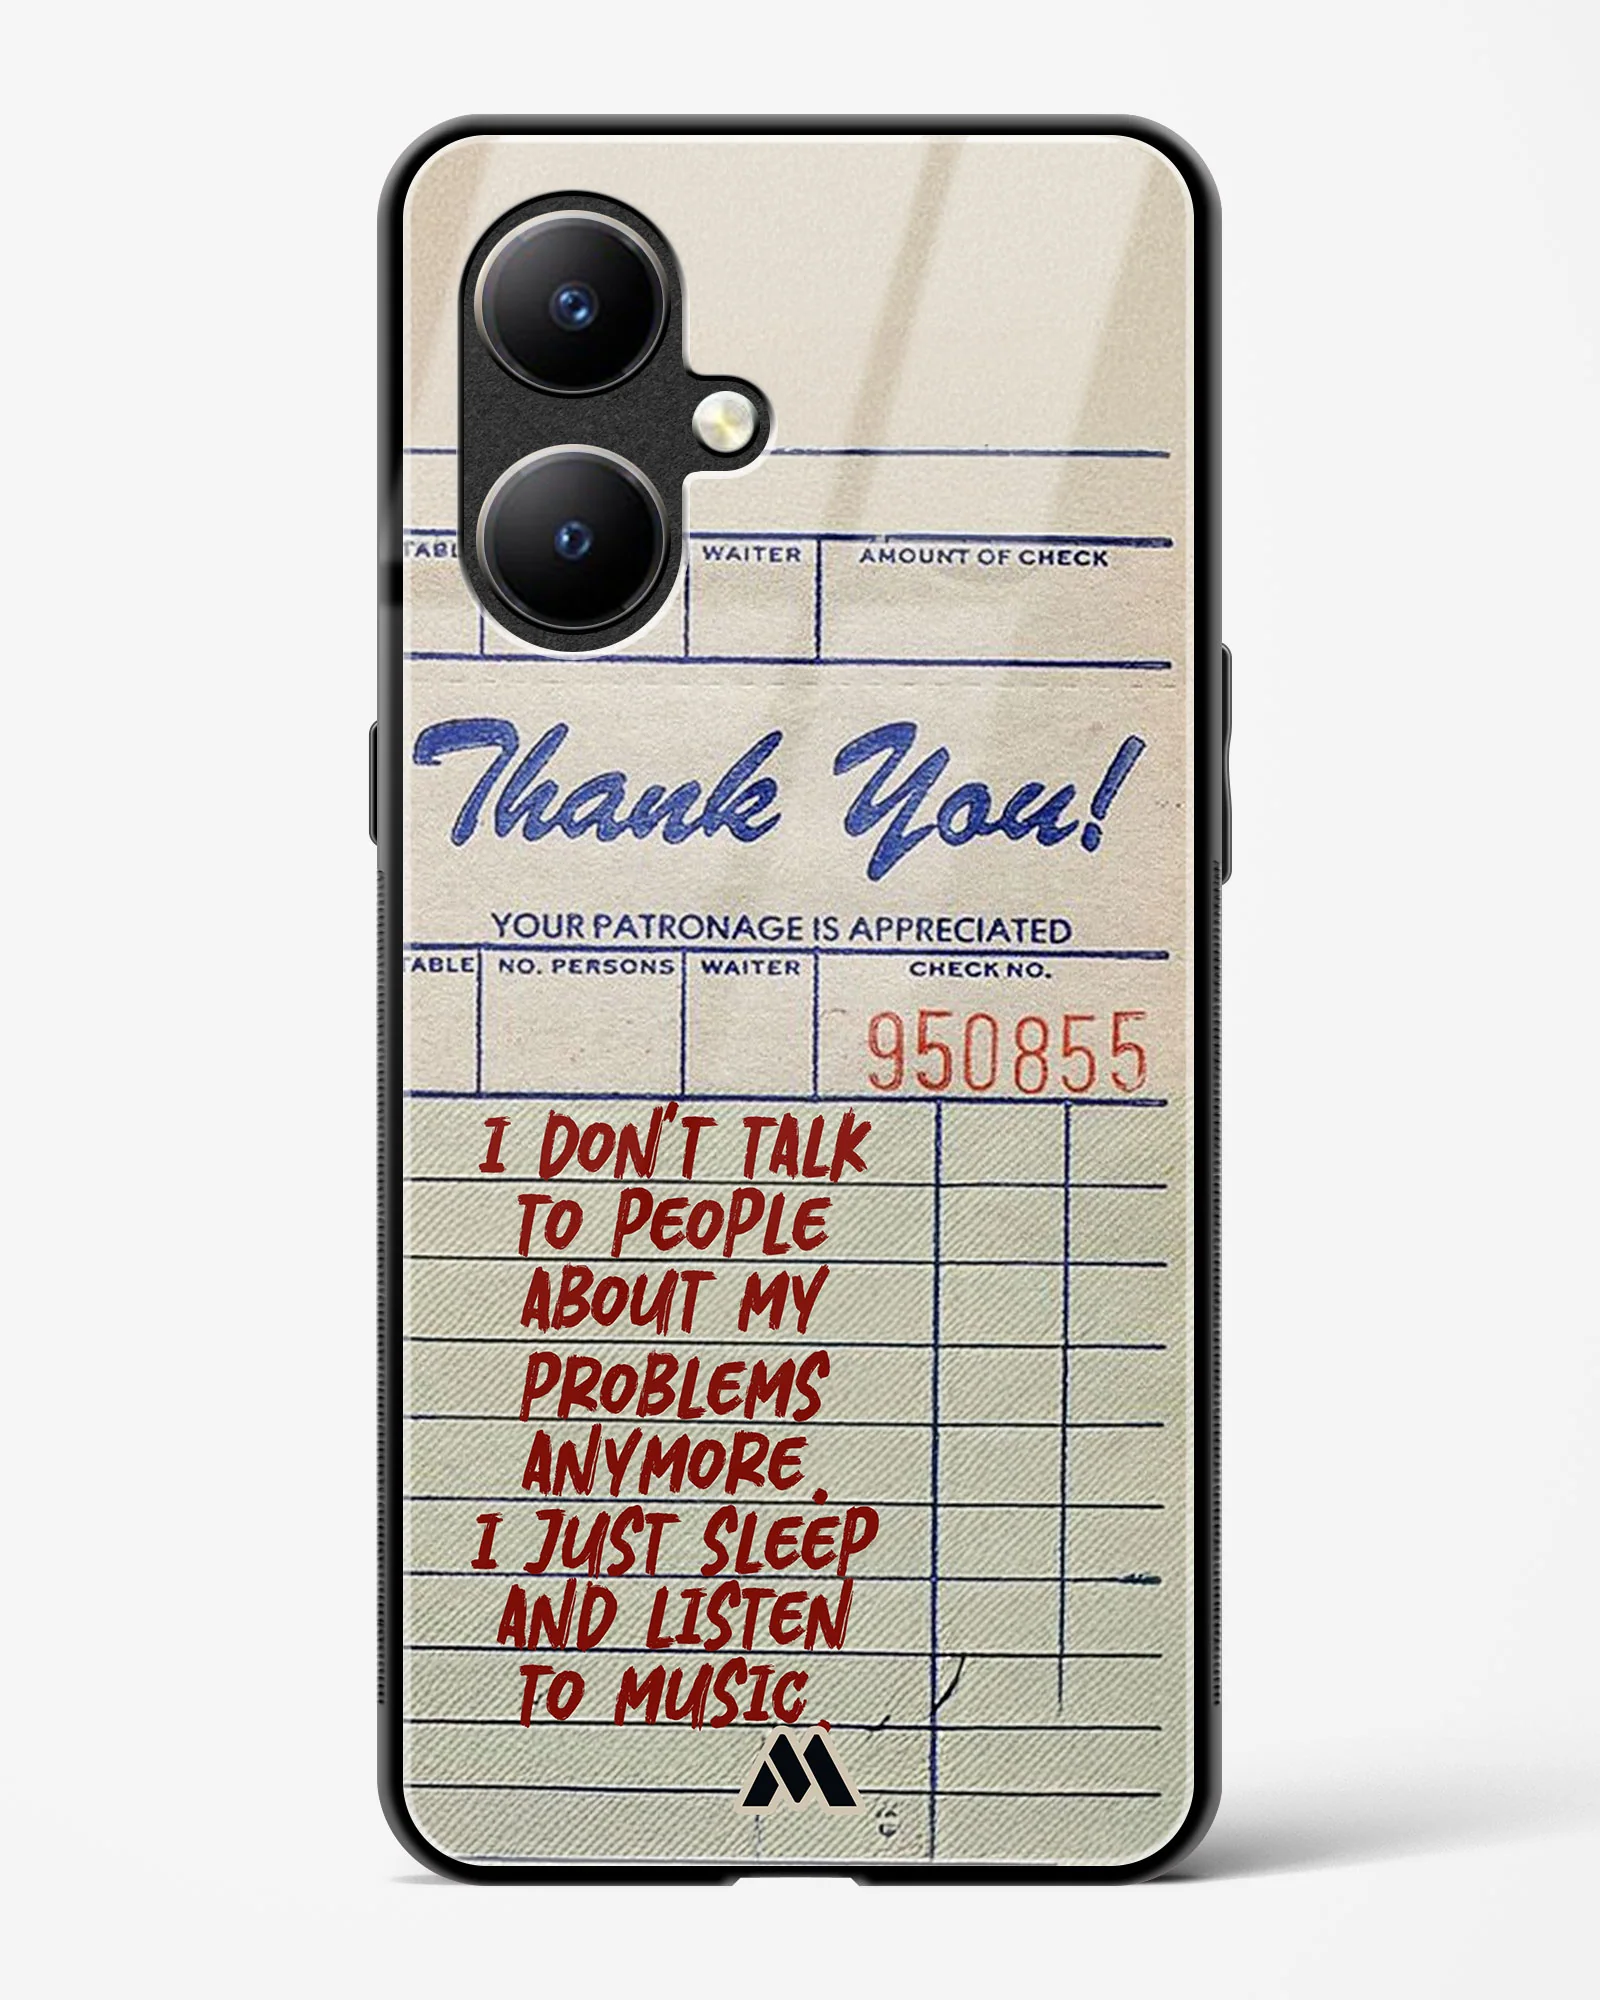 WAITER AMOUNT OF CHECK
Thank You!
YOUR PATRONAGE IS APPRECIATED
TABLE NO. PERSONS WAITER CHECK NO.
950855
I DON'T TALK
TO PEOPLE
ABOUT MY
PROBLEMS
ANYMORE.
I JUST SLEEP
AND LISTEN
TO MUSIC.